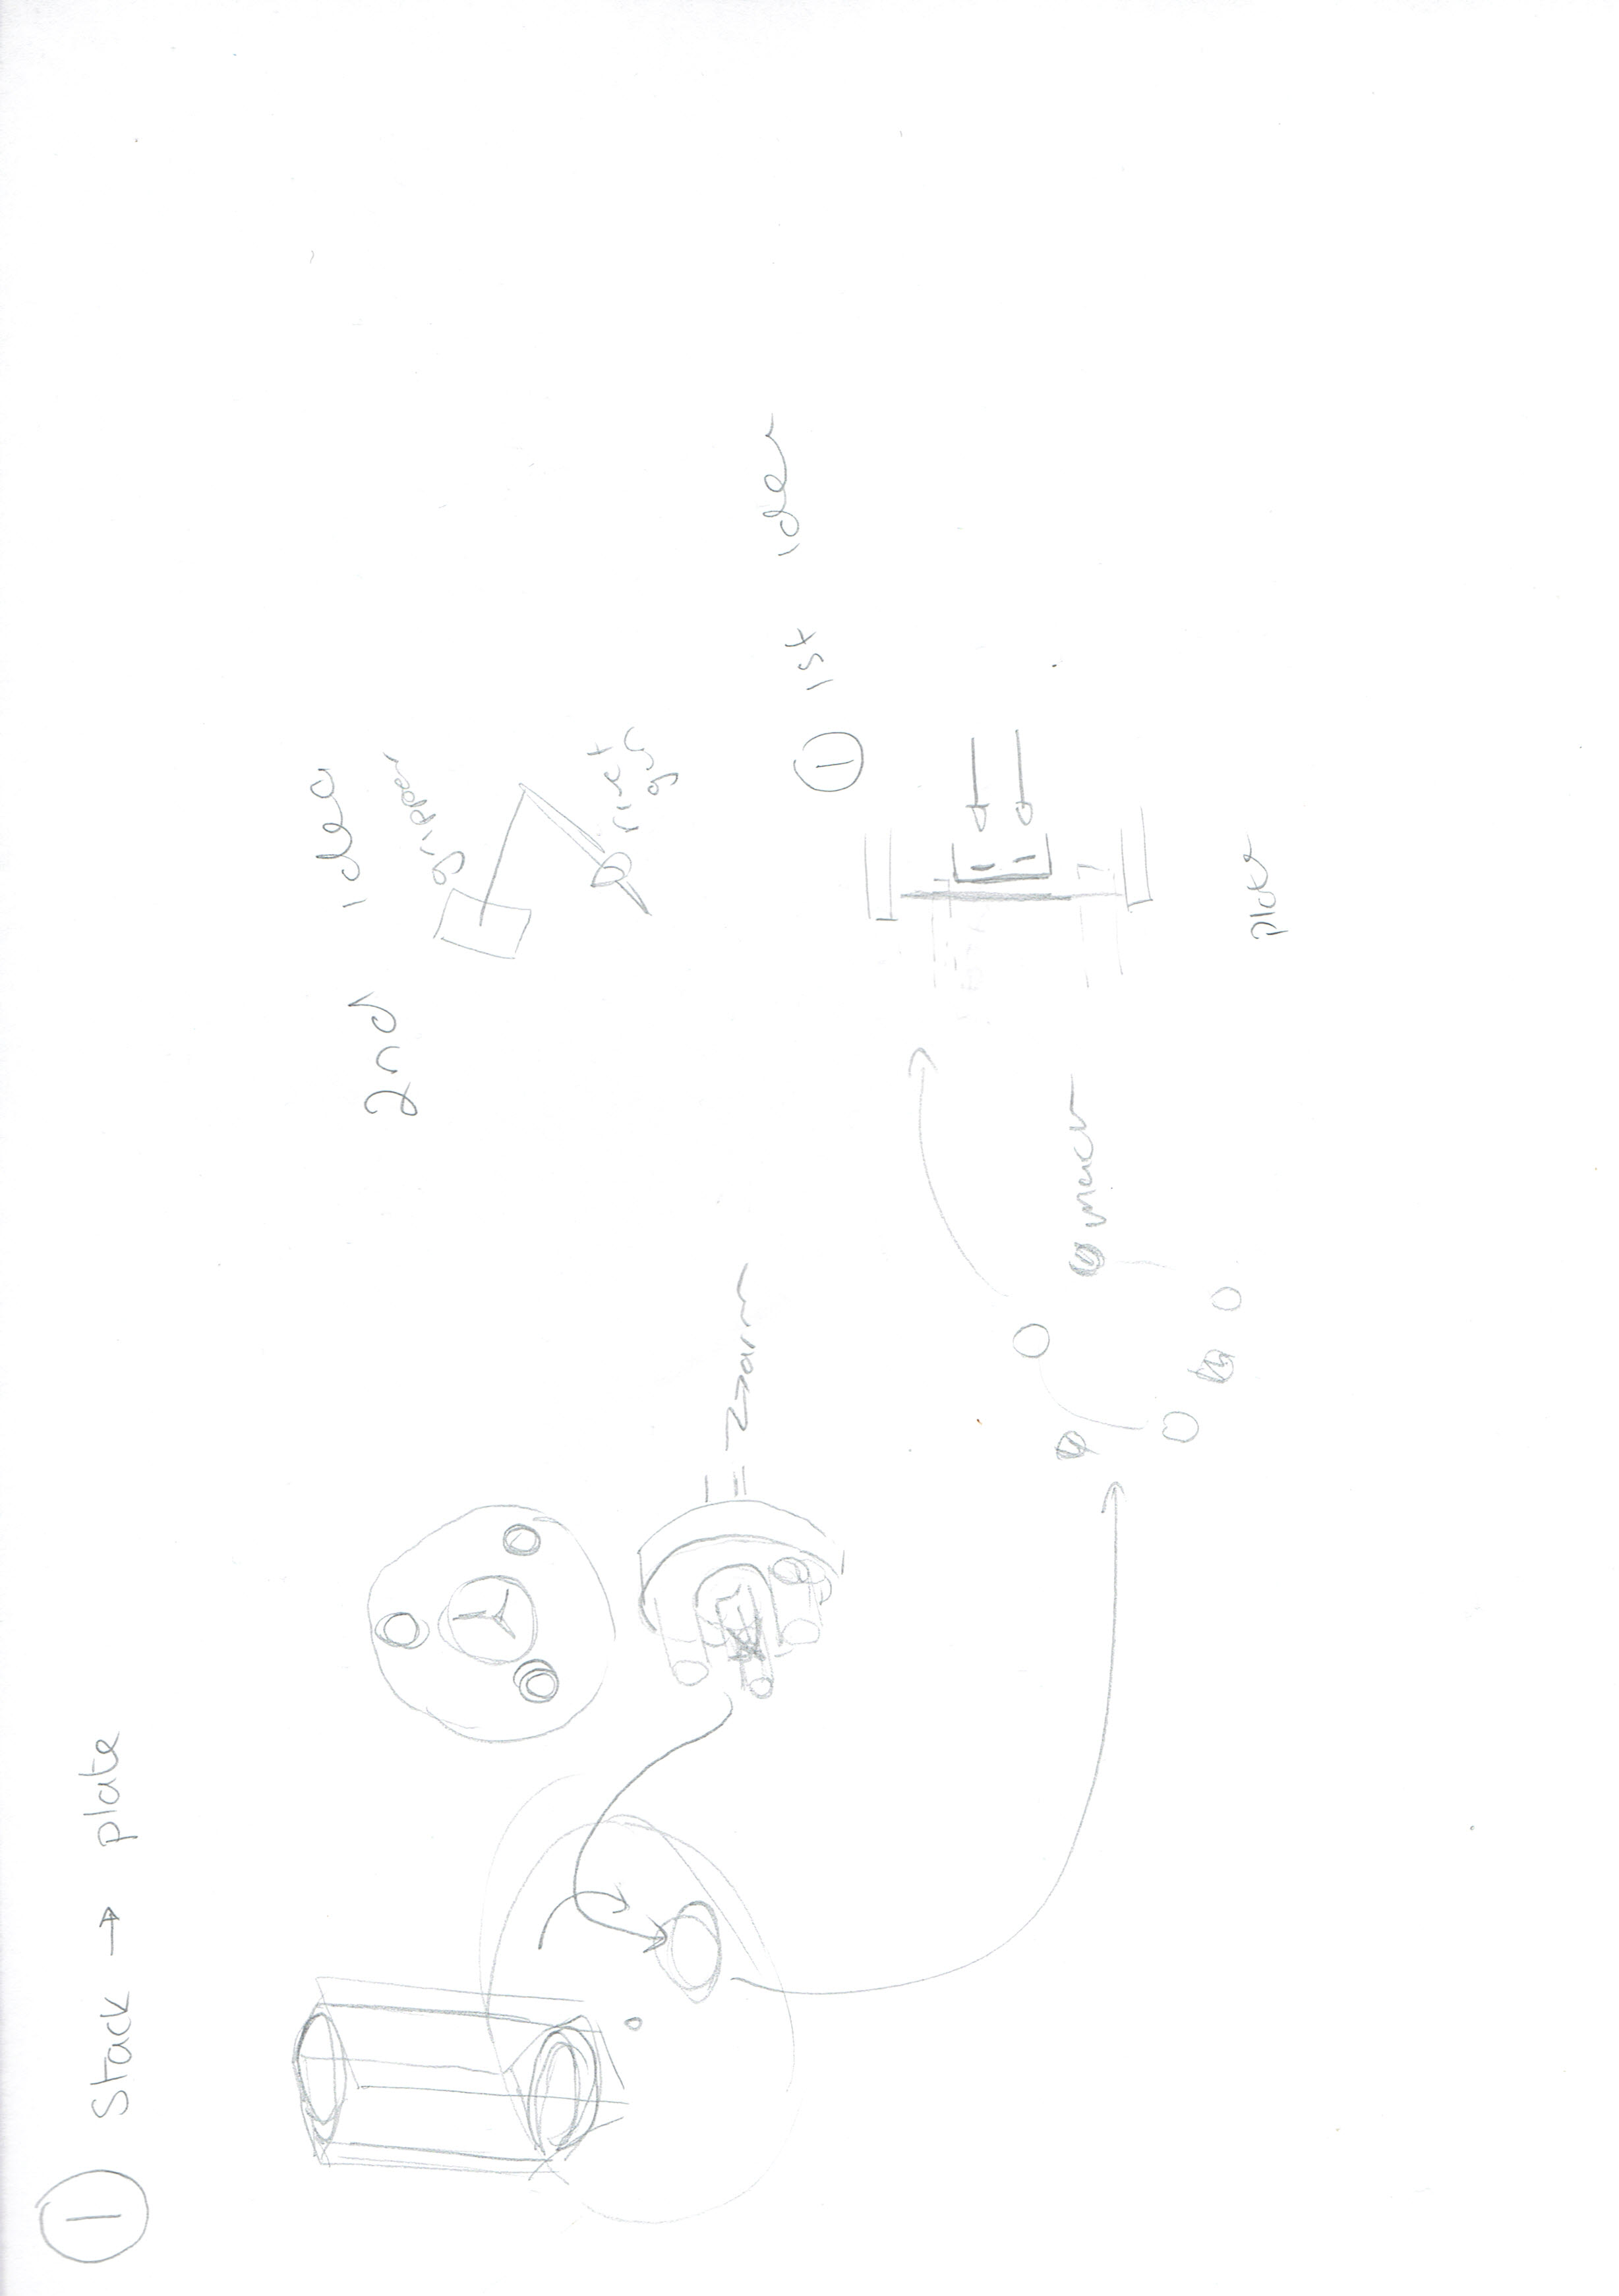 ① Stack → plate
2nd idea
gripper
rivet
gun
arm
① 1st idea
Plate